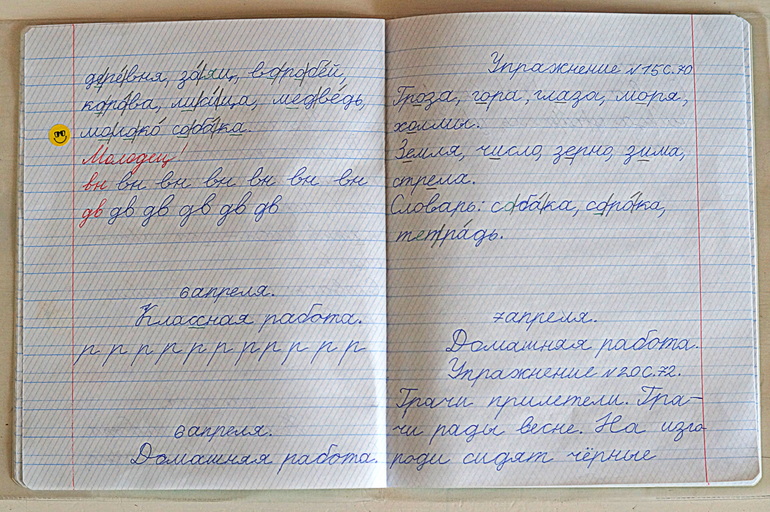 деревня, заяц, воробей,
корова, лисица, медведь,
молоко́ собака.
Молодец!
вн вн вн вн вн вн вн
дв дв дв дв дв дв
6 апреля.
Классная работа.
р р р р р р р р р р р р
6 апреля.
Домашняя работа.
Упражнение №15 С.70
Гроза, гора, глаза, моря,
холмы.
Земля, число, зерно, зима,
стрела.
Словарь: собака, сорока,
тетрадь.
7 апреля.
Домашняя работа.
Упражнение №20 С.72.
Грачи прилетели. Гра-
чи рады весне. На изго
роди сидят чёрные